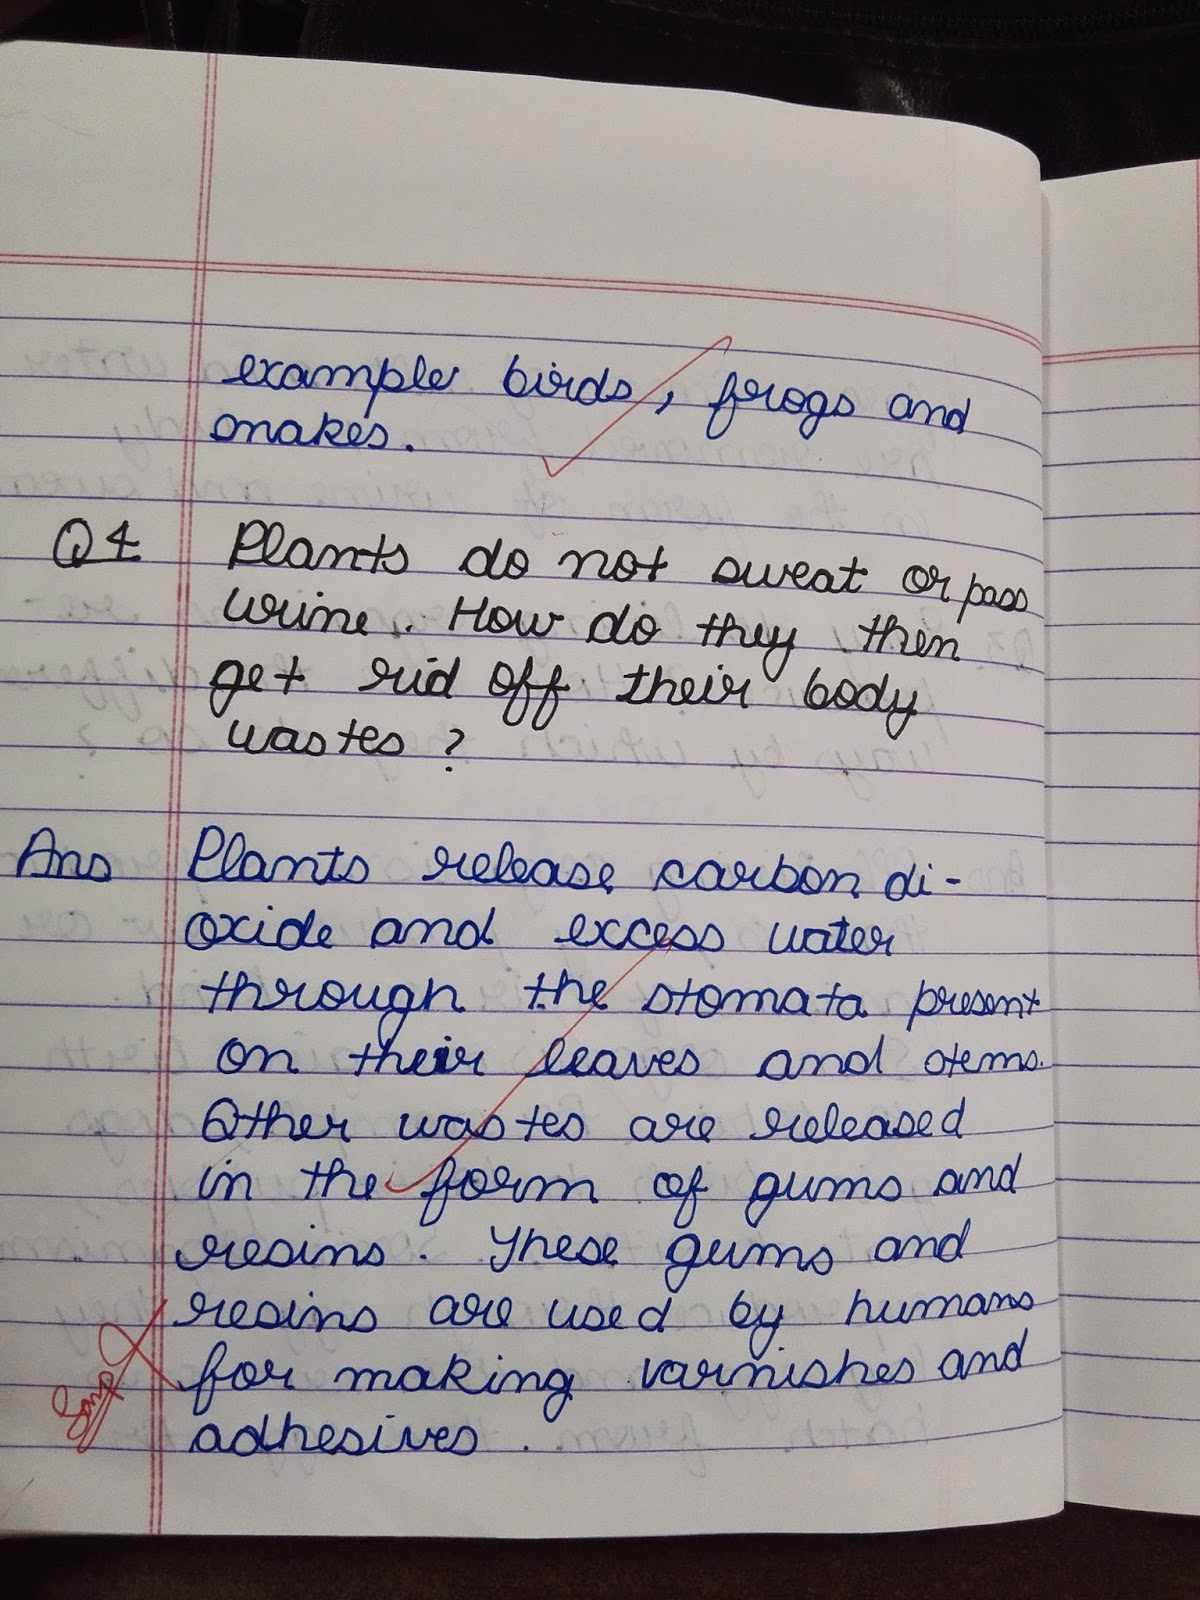 example birds, frogs and
snakes.
Q4 Plants do not sweat or pass
urine. How do they then
get rid off their body
wastes?
Ans Plants release carbon di-
oxide and excess water
through the stomata present
on their leaves and stems.
Other wastes are released
in the form of gums and
resins. These gums and
resins are used by humans
for making varnishes and
adhesives.